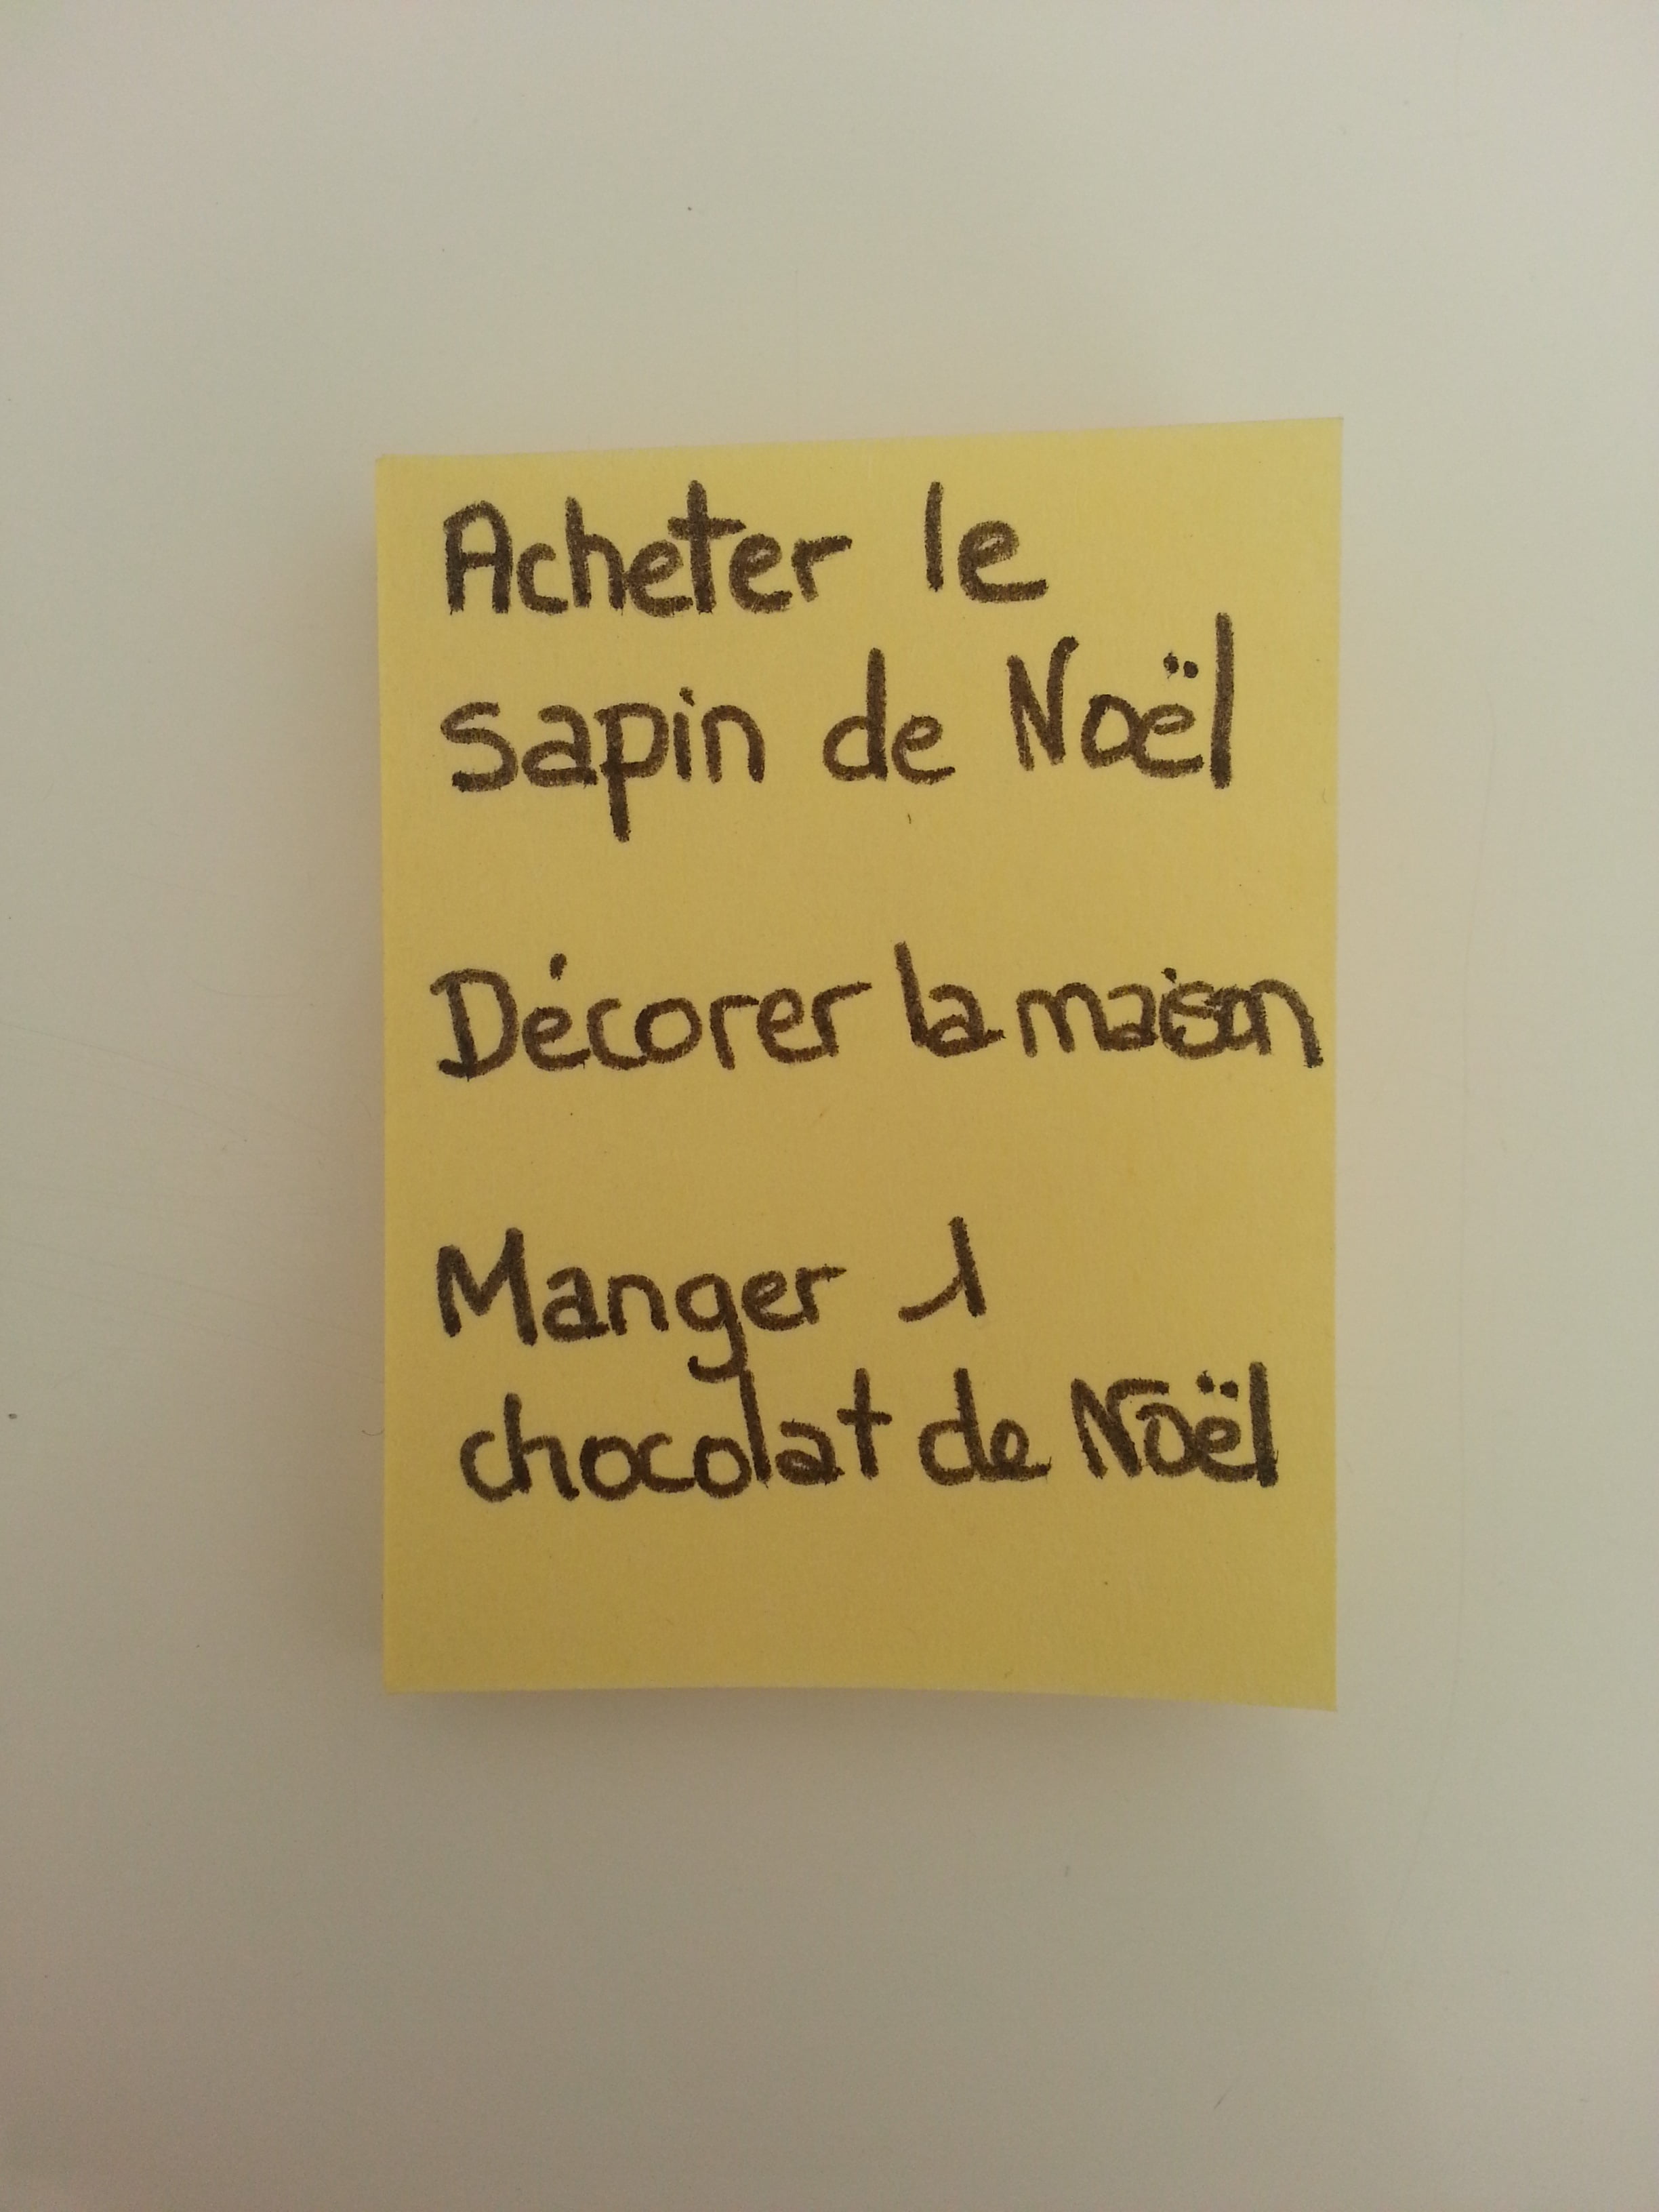 Acheter le
sapin de Noël
Décorer la maison
Manger 1
chocolat de Noël